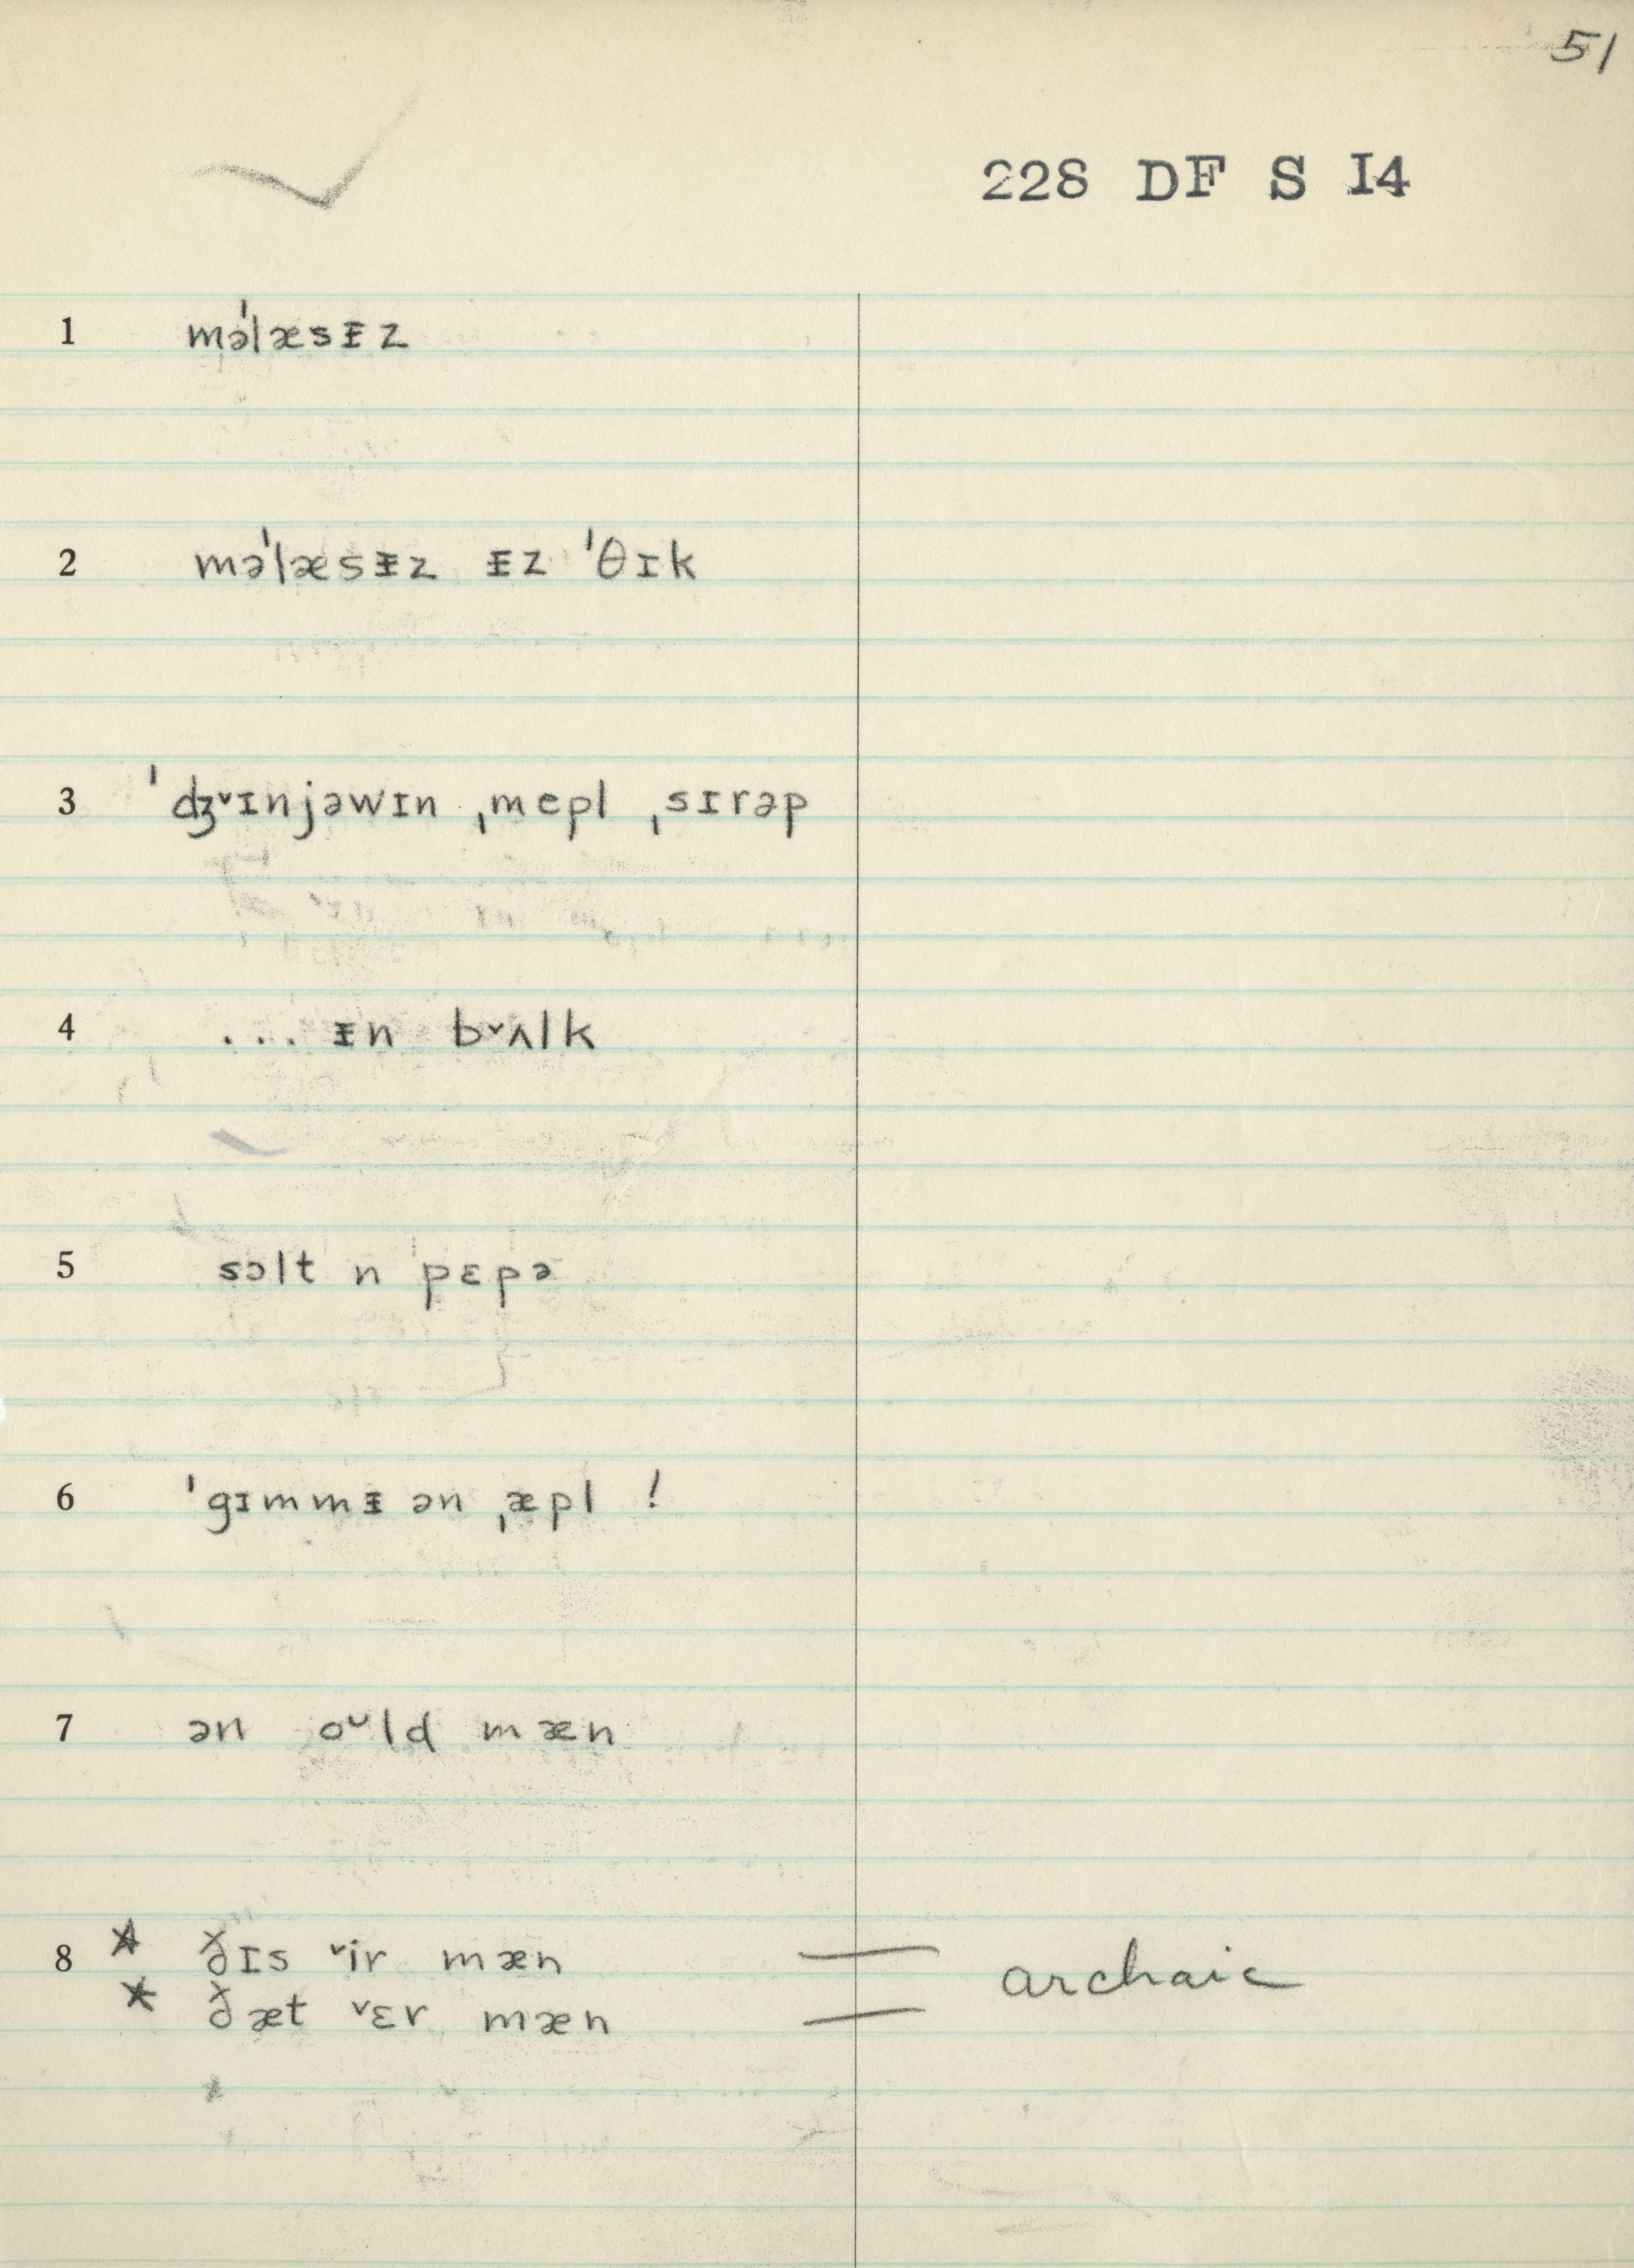 51
228 DF S I4
1 məˈlæsᵻz
2 məˈlæsᵻz ᵻz ˈθɪk
3 ˈʤ˅ɪnjəwɪn ˌmepl ˌsɪrəp
4 ... ᵻn b˅ʌlk
5 sɔlt n pɛpə
6 ˈgɪmmᵻ ən ˌæpl !
7 ən oᵘld mæn
8 * ðɪs ˅ir mæn — archaic
* ðæt ˅ɛr mæn —